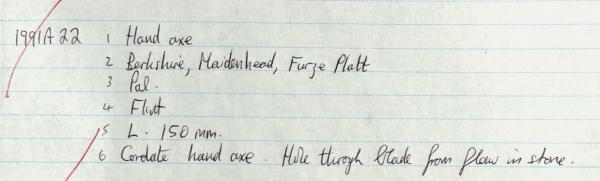 1991A22 1 Hand axe
2 Berkshire, Maidenhead, Furze Platt
3 Pal.
4 Flint
5 L. 150 mm.
6 Cordate hand axe. Hole through blade from flaw in stone.